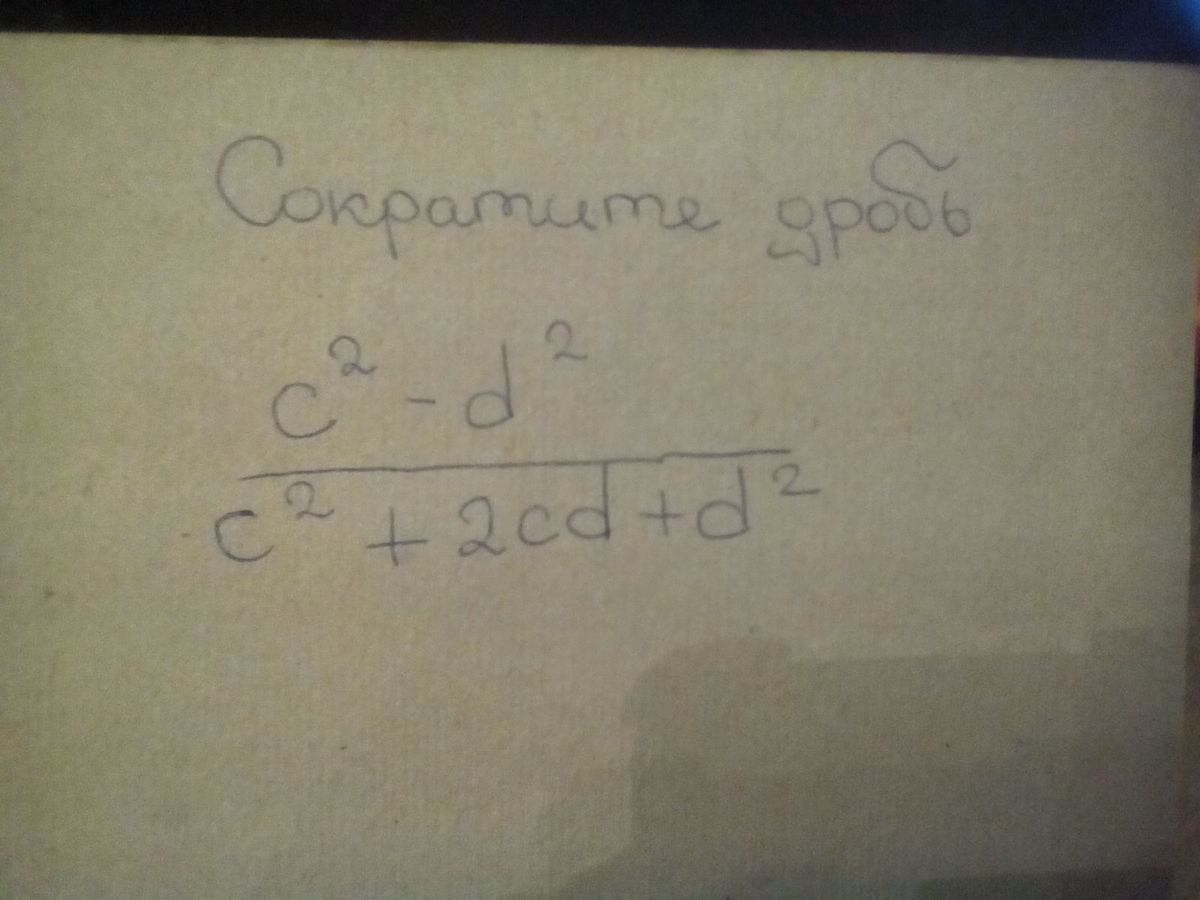 Сократите дробь
c² - d²
c² + 2cd + d²